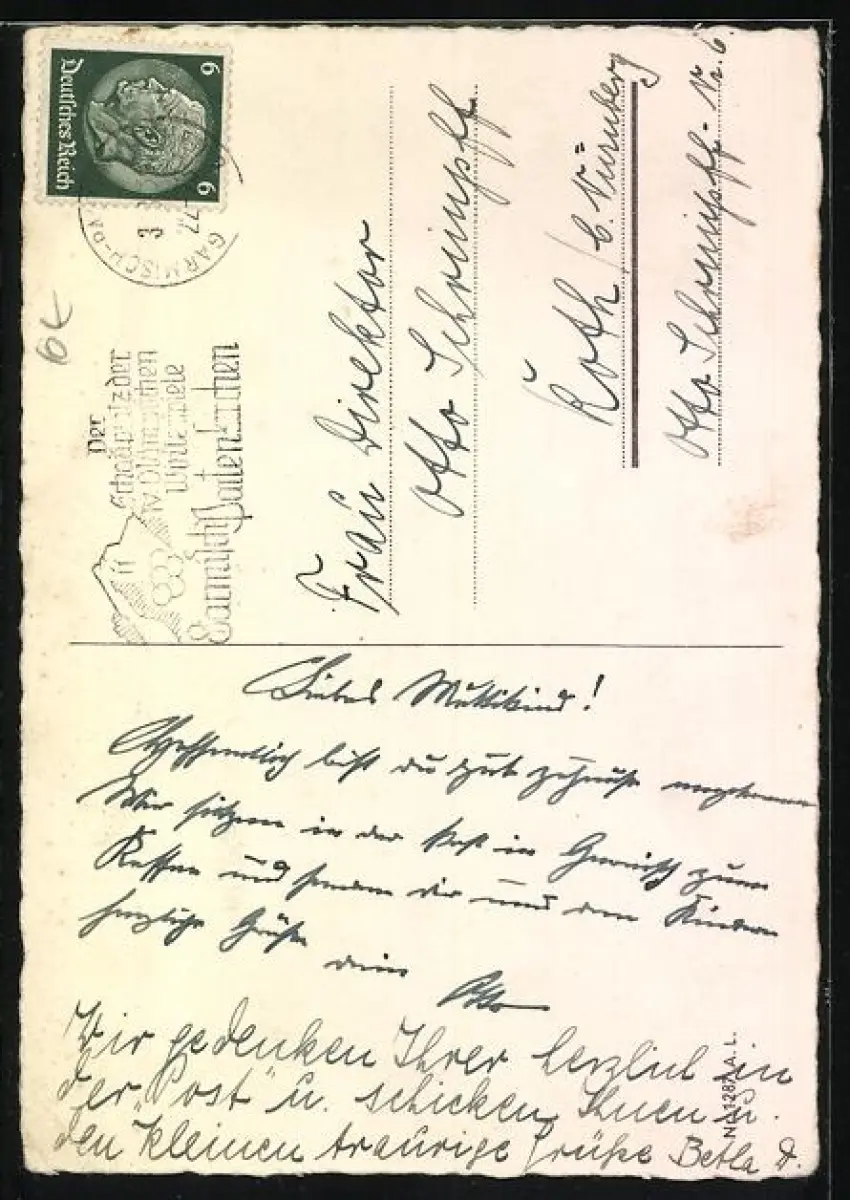 Deutsches Reich
6 6
GARMISCH-PA
3
Der
Schauplatz der
IV Olympischen
Winterspiele
Garmisch-Partenkirchen
Frau Direktor
Otto Schrimpff
Roth / b. Nürnberg
Otto Schrimpff-Str. 6.
Liebes Muttikind!
Hoffentlich bist du gut zuhause angekommen
Wir sitzen in der Post in Garmisch zum
Kaffee und senden dir und den Kindern
herzliche Grüße
dein
Otto
Wir gedenken Ihrer herzlich in
der „Post" u. schicken Ihnen u.
den kleinen traurige Grüße Betla D.